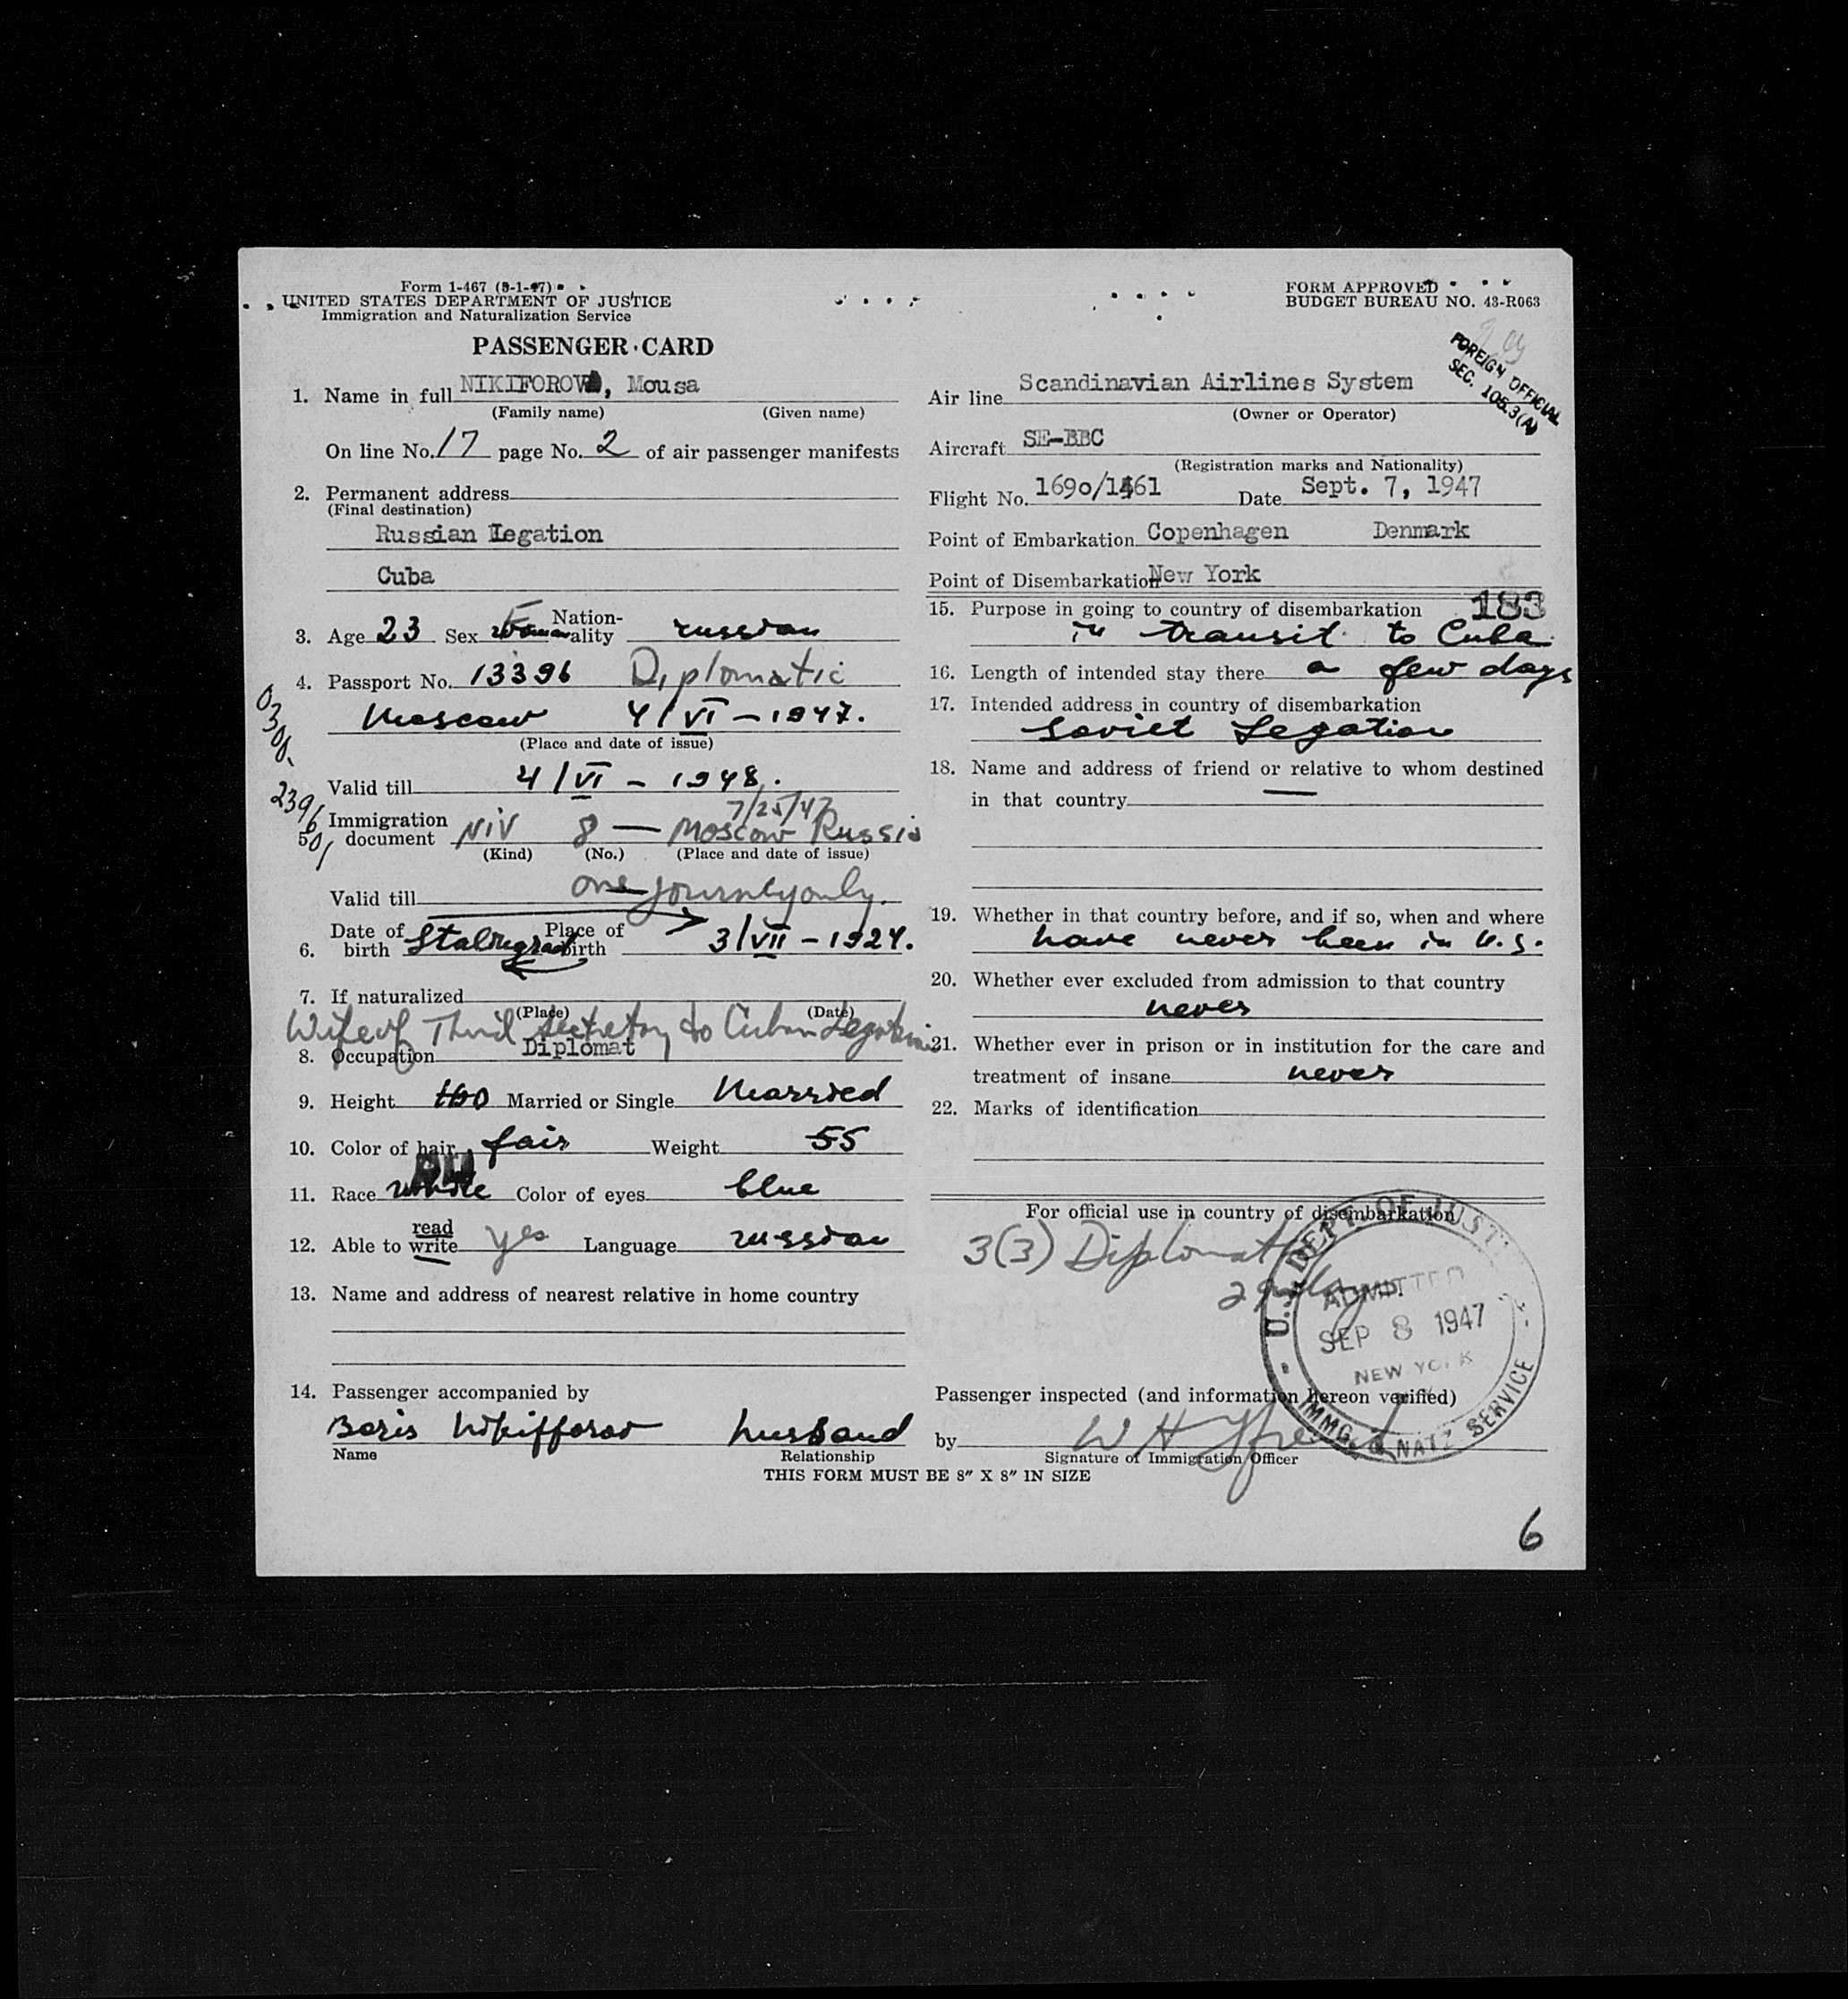 Form 1-467 (3-1-47)
UNITED STATES DEPARTMENT OF JUSTICE
Immigration and Naturalization Service
PASSENGER CARD
FORM APPROVED
BUDGET BUREAU NO. 43-R063
FOREIGN OFFICIAL
SEC. 105.3(A)
1. Name in full NIKIFOROVA, Mousa
(Family name) (Given name)
On line No. 17 page No. 2 of air passenger manifests
2. Permanent address
(Final destination)
Russian Legation
Cuba
3. Age 23 Sex F Nationality russian
4. Passport No. 13396 Diplomatic
Moscow 4/VI - 1947.
(Place and date of issue)
Valid till 4/VI - 1948.
0300.
2396
50,
7/25/47
Immigration document NIV 8 — Moscow Russia
(Kind) (No.) (Place and date of issue)
Valid till one journey only.
6. Date of birth Stalingrad Place of birth 3/VII - 1924.
7. If naturalized
(Place) (Date)
Wife of Third Secretary to Cuban Legation
8. Occupation Diplomat
9. Height 160 Married or Single Married
10. Color of hair fair Weight 55
11. Race white Color of eyes blue
12. Able to read write yes Language russian
13. Name and address of nearest relative in home country
14. Passenger accompanied by
Boris Nikifforov husband
Name Relationship
Air line Scandinavian Airlines System
(Owner or Operator)
Aircraft SE-BBC
(Registration marks and Nationality)
Flight No. 1690/1461 Date Sept. 7, 1947
Point of Embarkation Copenhagen Denmark
Point of Disembarkation New York
183
15. Purpose in going to country of disembarkation
in transit to Cuba
16. Length of intended stay there a few days
17. Intended address in country of disembarkation
Soviet Legation
18. Name and address of friend or relative to whom destined
in that country —
19. Whether in that country before, and if so, when and where
have never been in U.S.
20. Whether ever excluded from admission to that country
never
21. Whether ever in prison or in institution for the care and
treatment of insane never
22. Marks of identification
For official use in country of disembarkation
3(3) Diplomat
U.S. DEPT. OF JUSTICE
ADMITTED
SEP 8 1947
NEW YORK
IMMG. & NATZ. SERVICE
Passenger inspected (and information hereon verified)
by W H
Signature of Immigration Officer
THIS FORM MUST BE 8" X 8" IN SIZE
6